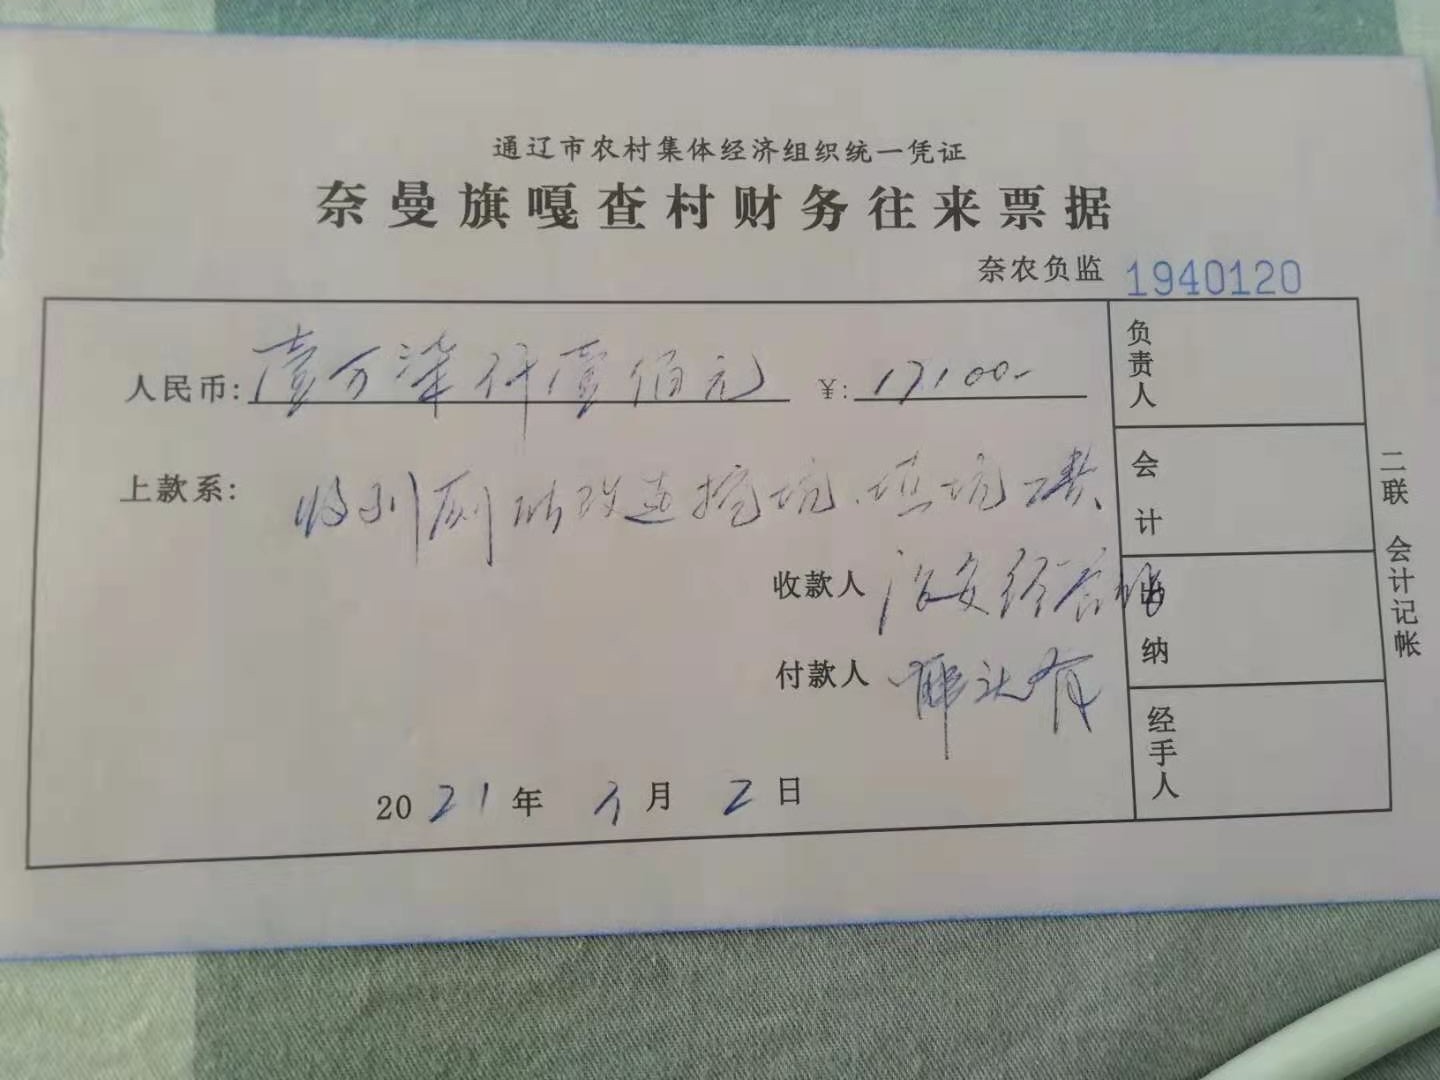 通辽市农村集体经济组织统一凭证
奈曼旗嘎查村财务往来票据
奈农负监 1940120
人民币: 壹万柒仟壹佰元 ¥: 17100-
上款系: 收到厕所改造挖坑、填坑工费
收款人 治安经合社
付款人 邢志有
2021年 月 2日
负责人
会计
出纳
经手人
二联 会计记帐